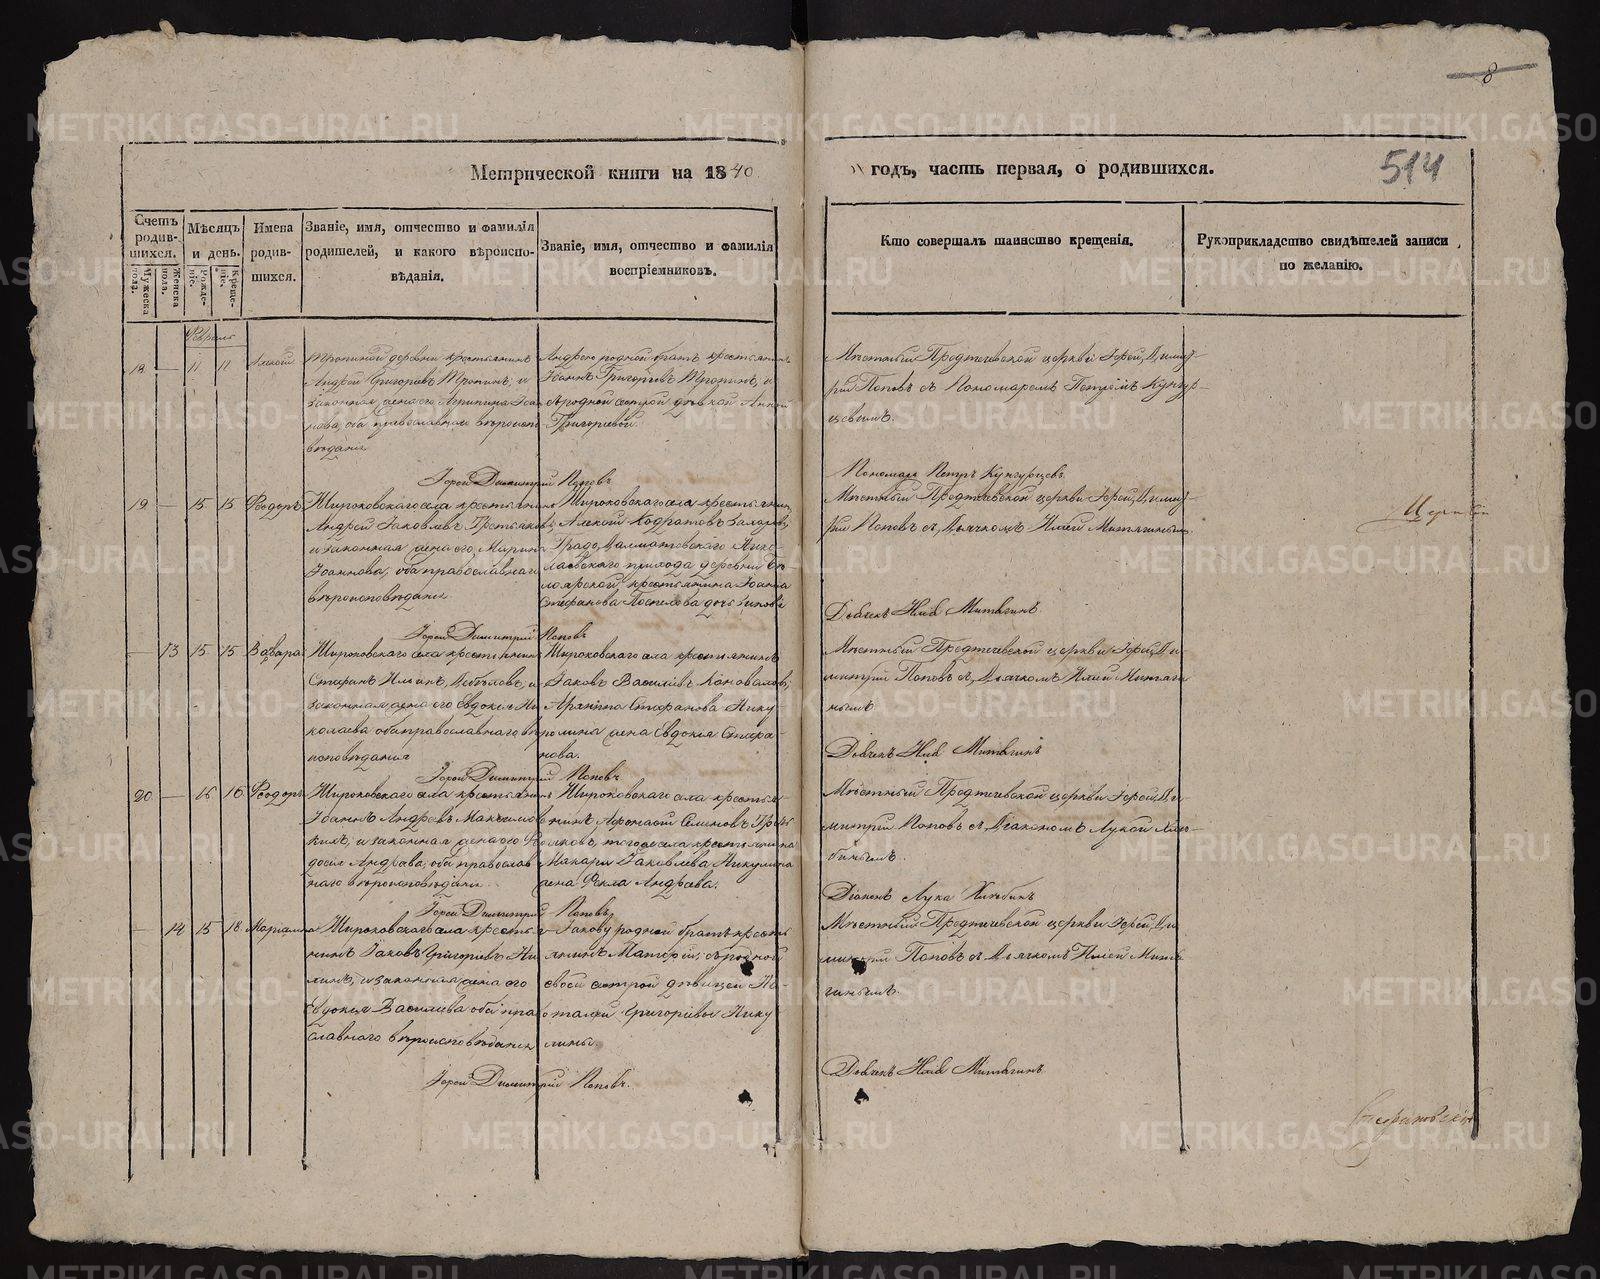 8
514
Метрической книги на 1840
годъ, часть первая, о родившихся.
Счетъ родившихся.
Мужеска пола.
Женска пола.
Мѣсяцъ и день.
Рожденіе.
Крещеніе.
Имена родившихся.
Званіе, имя, отчество и фамилія родителей, и какого вѣроисповѣданія.
Званіе, имя, отчество и фамилія воспріемниковъ.
Кто совершалъ таинство крещенія.
Рукоприкладство свидѣтелей записи по желанію.
Февраль
18 — 11 11 Алексій
деревни крестьянинъ
Андрей Григорьевъ Тропинъ, и
законная жена его Агрипина Іоан
нова, оба православнаго вѣроиспо
вѣданія
Андрею родной братъ крестьянинъ
Іоаннъ Григорьевъ Тропинъ, и
съ родной сестрой дѣвкой Анной
Григорьевой.
Мѣстный Предтечевской церкви Іерей Димит-
рій Поповъ съ Пономаремъ Петромъ Кунгур-
цевымъ.
Іерей Димитрій Поповъ
Пономарь Петръ Кунгурцевъ
19 — 15 15 Ѳеодоръ
Широковскаго села крестьянинъ
Андрей Іаковлевъ Третьяковъ,
и законная жена его, Марина
Іоаннова, оба православнаго
вѣроисповѣданія
Широковскаго села крестьянинъ
Алексій
Града Далматовскаго Нико-
лаевскаго прихода деревни Бѣ
лоярской, крестьянина Іоанна
Стефанова Поспелова дочь
Мѣстный Предтечевской церкви Іерей Димит-
рій Поповъ съ Дьячкомъ Иліей Митягинымъ.
Іерей Димитрій Поповъ
Дьячекъ Илія Митягинъ
— 13 15 15 Варвара
Широковскаго села крестьянинъ
Стефанъ Ильинъ и
законная жена его Евдокія Ни
колаева оба православнаго вѣ
роисповѣданія
Широковскаго села крестьянинъ
Іаковъ Василіевъ Коноваловъ,
Архипа Стефанова Нику-
лина жена Евдокія Стефа-
нова.
Мѣстный Предтечевской церкви Іерей Ди
митрій Поповъ съ Дьячкомъ Иліей Митяги
нымъ.
Іерей Димитрій Поповъ
Дьячекъ Илія Митягинъ
20 — 16 16 Ѳеодоръ
Широковскаго села крестьянинъ
Іоаннъ Андреевъ
и законная жена его
Андреева, оба православ
наго вѣроисповѣданія
Широковскаго села крестья-
нинъ Аѳонасій Семеновъ
того же села крестьянина
Макарія Іаковлева Никулина
жена Ѳекла Андреева.
Мѣстный Предтечевской церкви Іерей Ди
митрій Поповъ съ Діакономъ Лукой Хлѣ-
бинымъ.
Іерей Димитрій Поповъ
Діаконъ Лука Хлѣбинъ
— 14 15 18 Маріамна
Широковскаго села крестья-
нинъ Іаковъ Григорьевъ Ни
кулинъ, и законная жена его
Евдокія Василіева оба право
славнаго вѣроисповѣданія
Іакову родной братъ кресть
янинъ съ родной
своей сестрой дѣвицей
Григорьевой Нику
линыхъ.
Мѣстный Предтечевской церкви Іерей Ди
митрій Поповъ съ Дьячкомъ Иліей Митя
гинымъ.
Іерей Димитрій Поповъ.
Дьячекъ Илія Митягинъ
METRIKI.GASO-URAL.RU